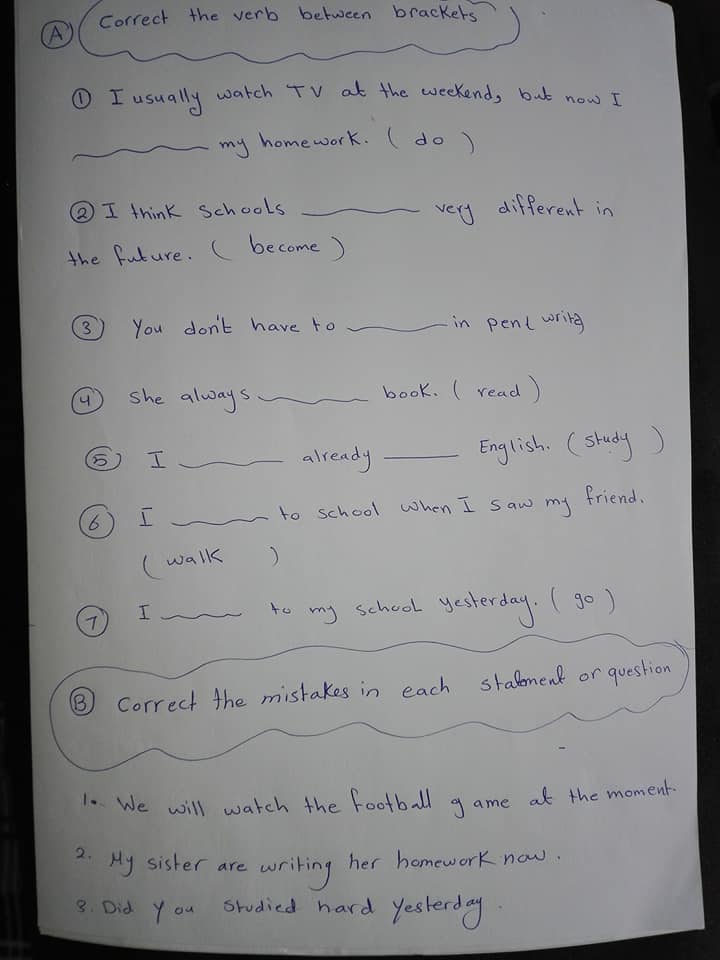 A) Correct the verb between brackets
① I usually watch TV at the weekend, but now I
my homework. ( do )
② I think schools very different in
the future. ( become )
③ You don't have to in pen ( write
④ She always book. ( read )
⑤ I already English. ( study )
⑥ I to school when I saw my friend.
( walk )
⑦ I to my school yesterday. ( go )
Ⓑ Correct the mistakes in each statement or question
1. We will watch the football game at the moment.
2. My sister are writing her homework now.
3. Did you studied hard yesterday.